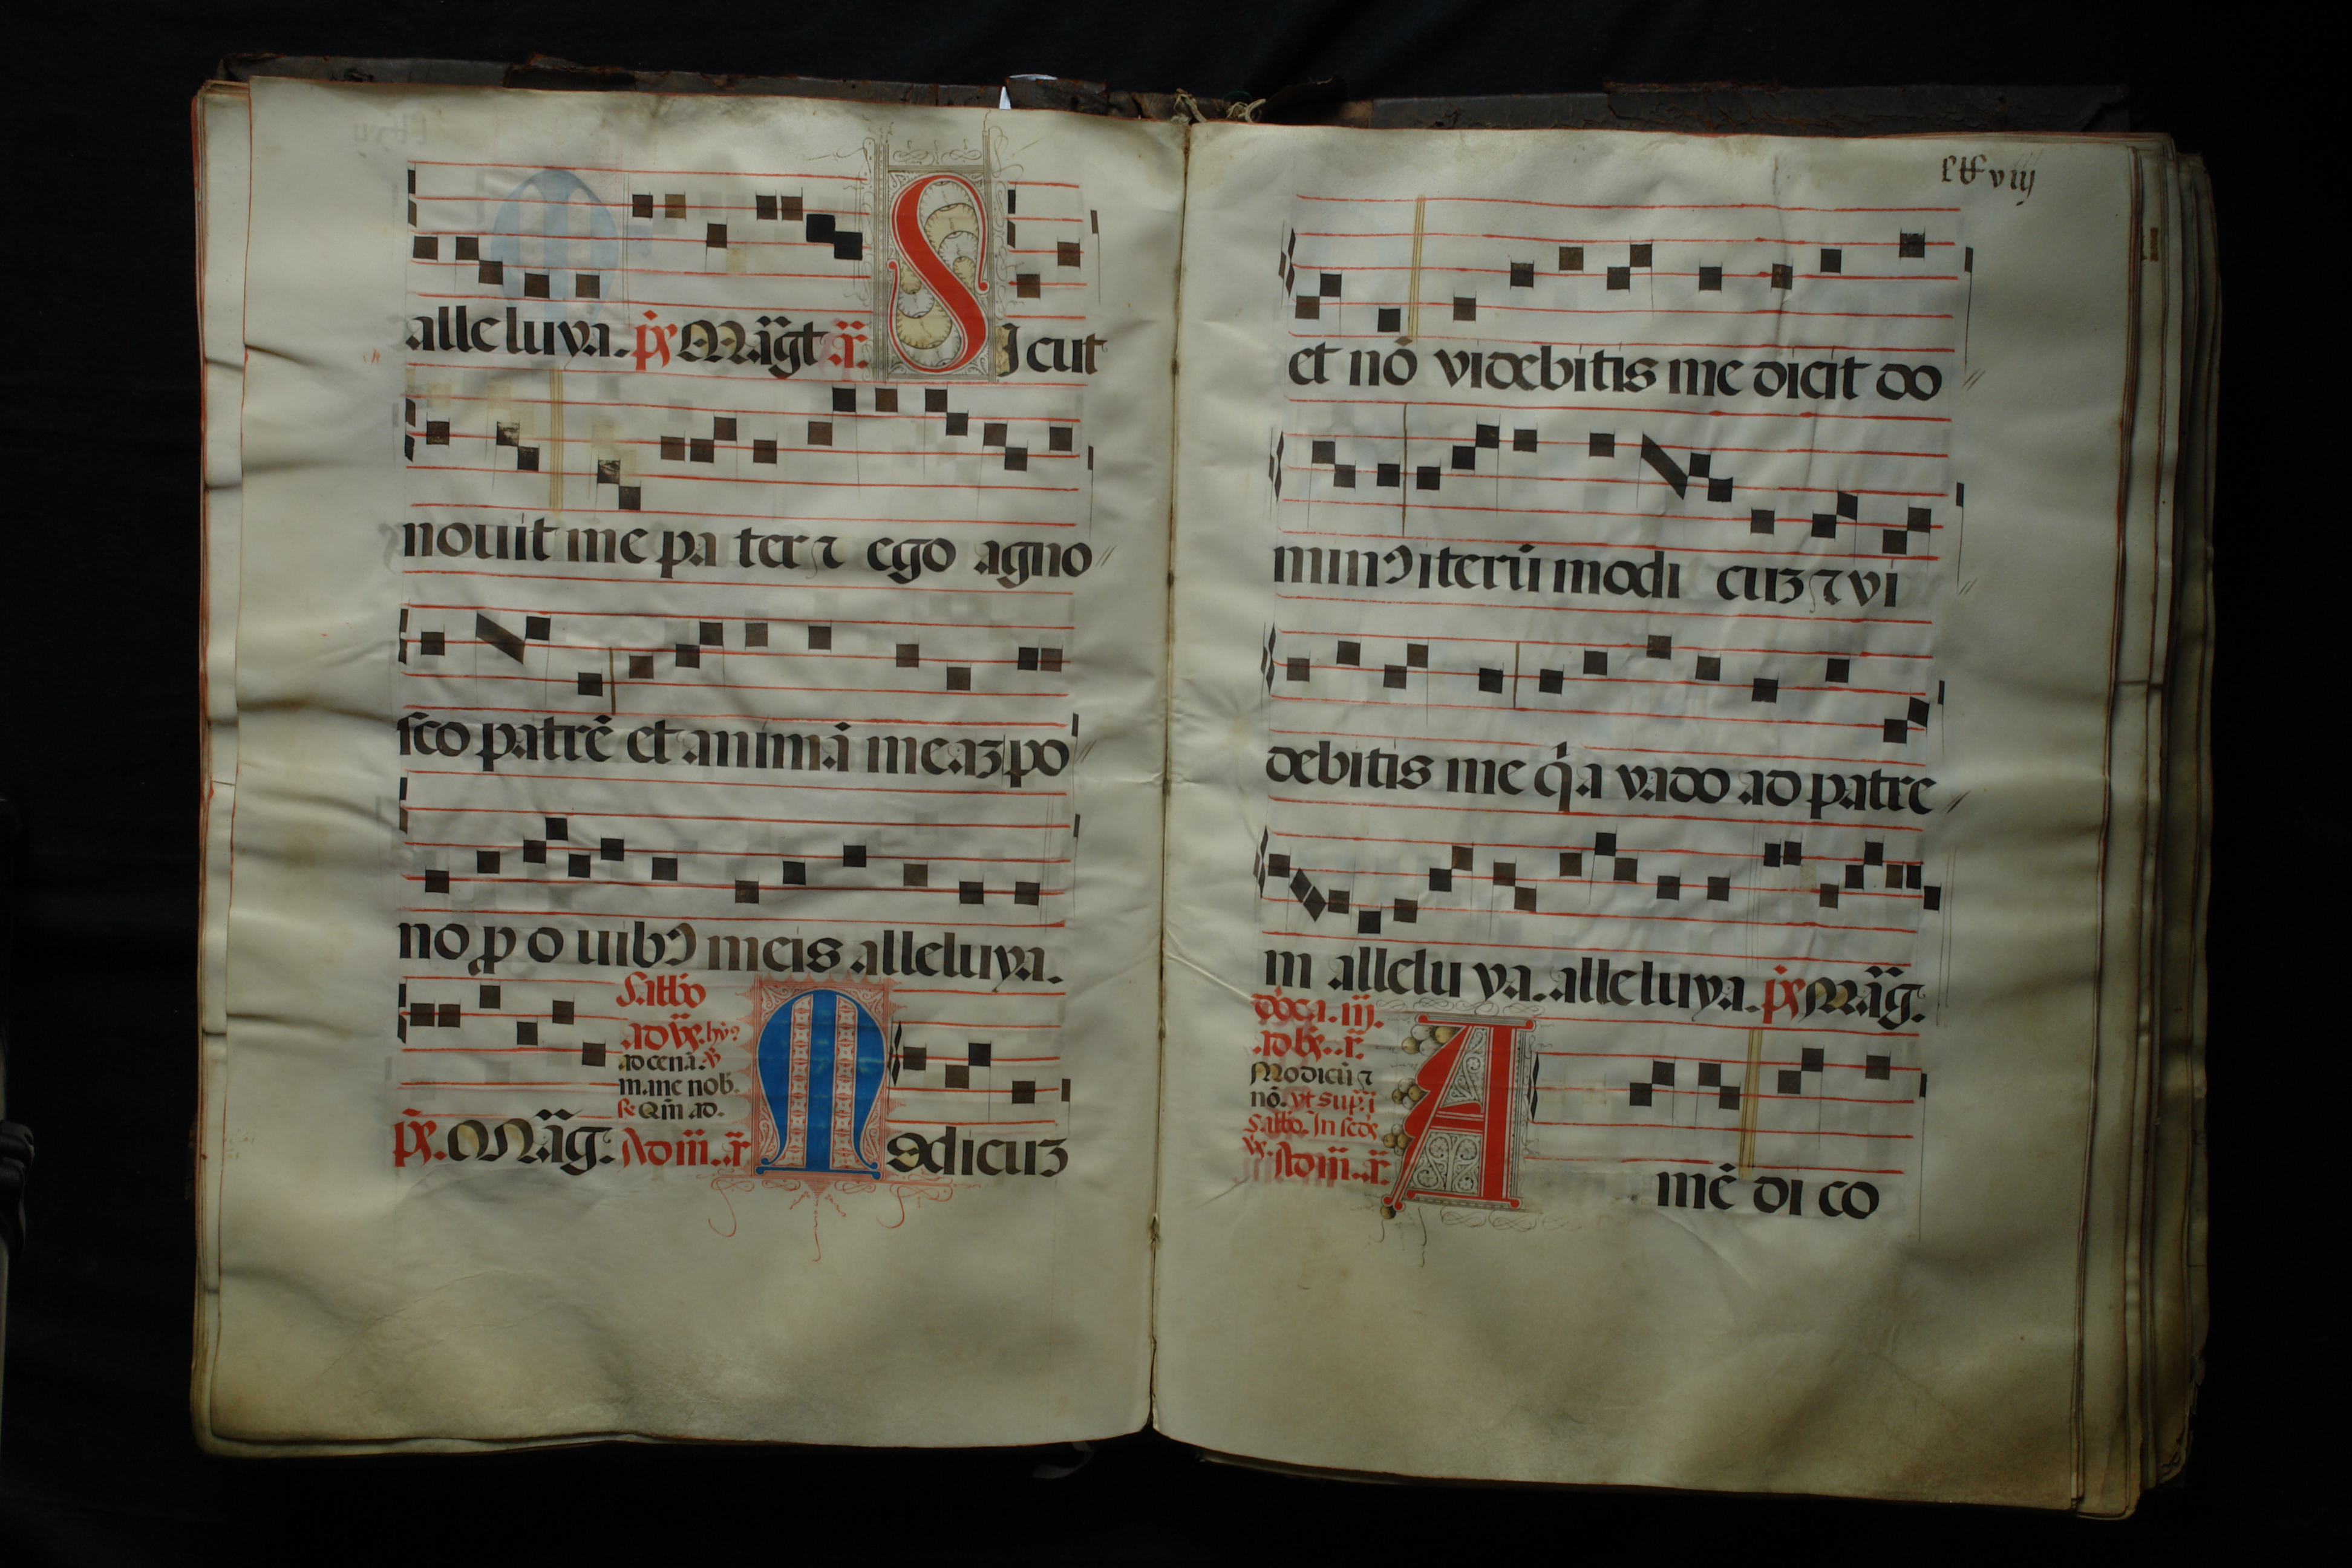 alleluya. ps̃ Mag̃t a͠.
SIcut
nouit me pa ter ⁊ ego agno
sco patrē et animā meaʒ po
no ꝓ o uibꝰ meis alleluya.
Sabbo
ad vs̃. hyꝰ
ad cenā. v̄
m. me nob.
sc̄ Qm̄ ad.
ps̃. Mag̃. Ad m̄. a͠
Modicuʒ
lxviij
et nō videbitis me dicit do
minꝰ iterū modi cuʒ ⁊ vi
debitis me q̇a vado ad patre
m allelu ya. alleluya. ps̃ Mag̃.
Dn̄ca. iij.
Modicū ⁊
nō. vt sup. ĩ
Sabbo. In scd̃s
vs̃. Ad m̄. a͠.
Amē di co